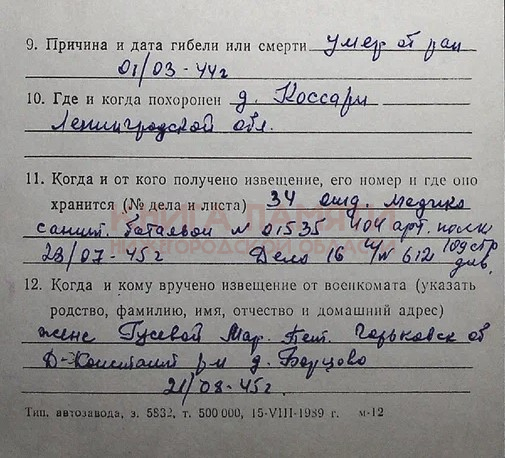 9. Причина и дата гибели или смерти умер от ран
01/03-44г
10. Где и когда похоронен д. Коссари
Ленинградской обл.
11. Когда и от кого получено извещение, его номер и где оно
хранится (№ дела и листа) 34 отд. медико
санит. батальон N 01535 404 арт. полка
КНИГА ПАМЯТИ
НИЖЕГОРОДСКОЙ ОБЛАСТИ
23/07-45г Дело 16 N 612
див.
12. Когда и кому вручено извещение от военкомата (указать
родство, фамилию, имя, отчество и домашний адрес)
жене Гусевой Мар. Пет. Горьковск об
Д-Констант р-н д. Борцово
21/08-45г.
Тип. автозавода, з. 5832, т. 500 000, 15-VIII-1989 г. м-12